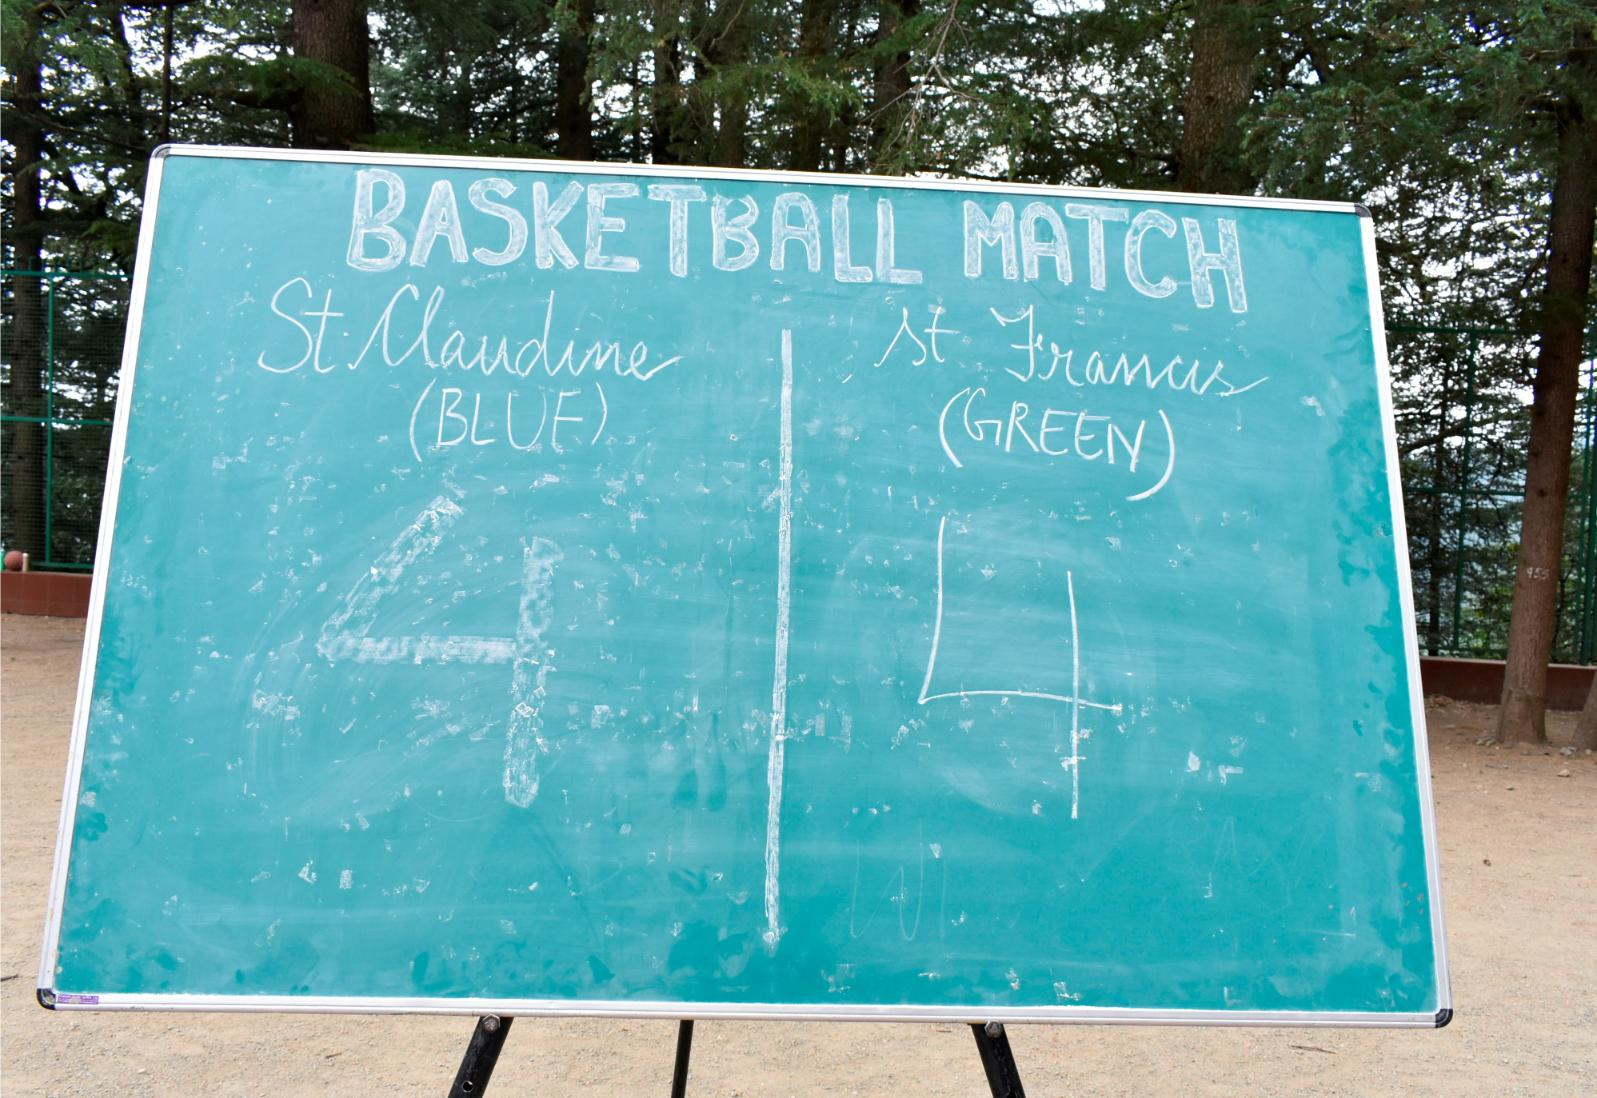 BASKETBALL MATCH
St. Claudine
(BLUE)
4
St Francis
(GREEN)
4
955